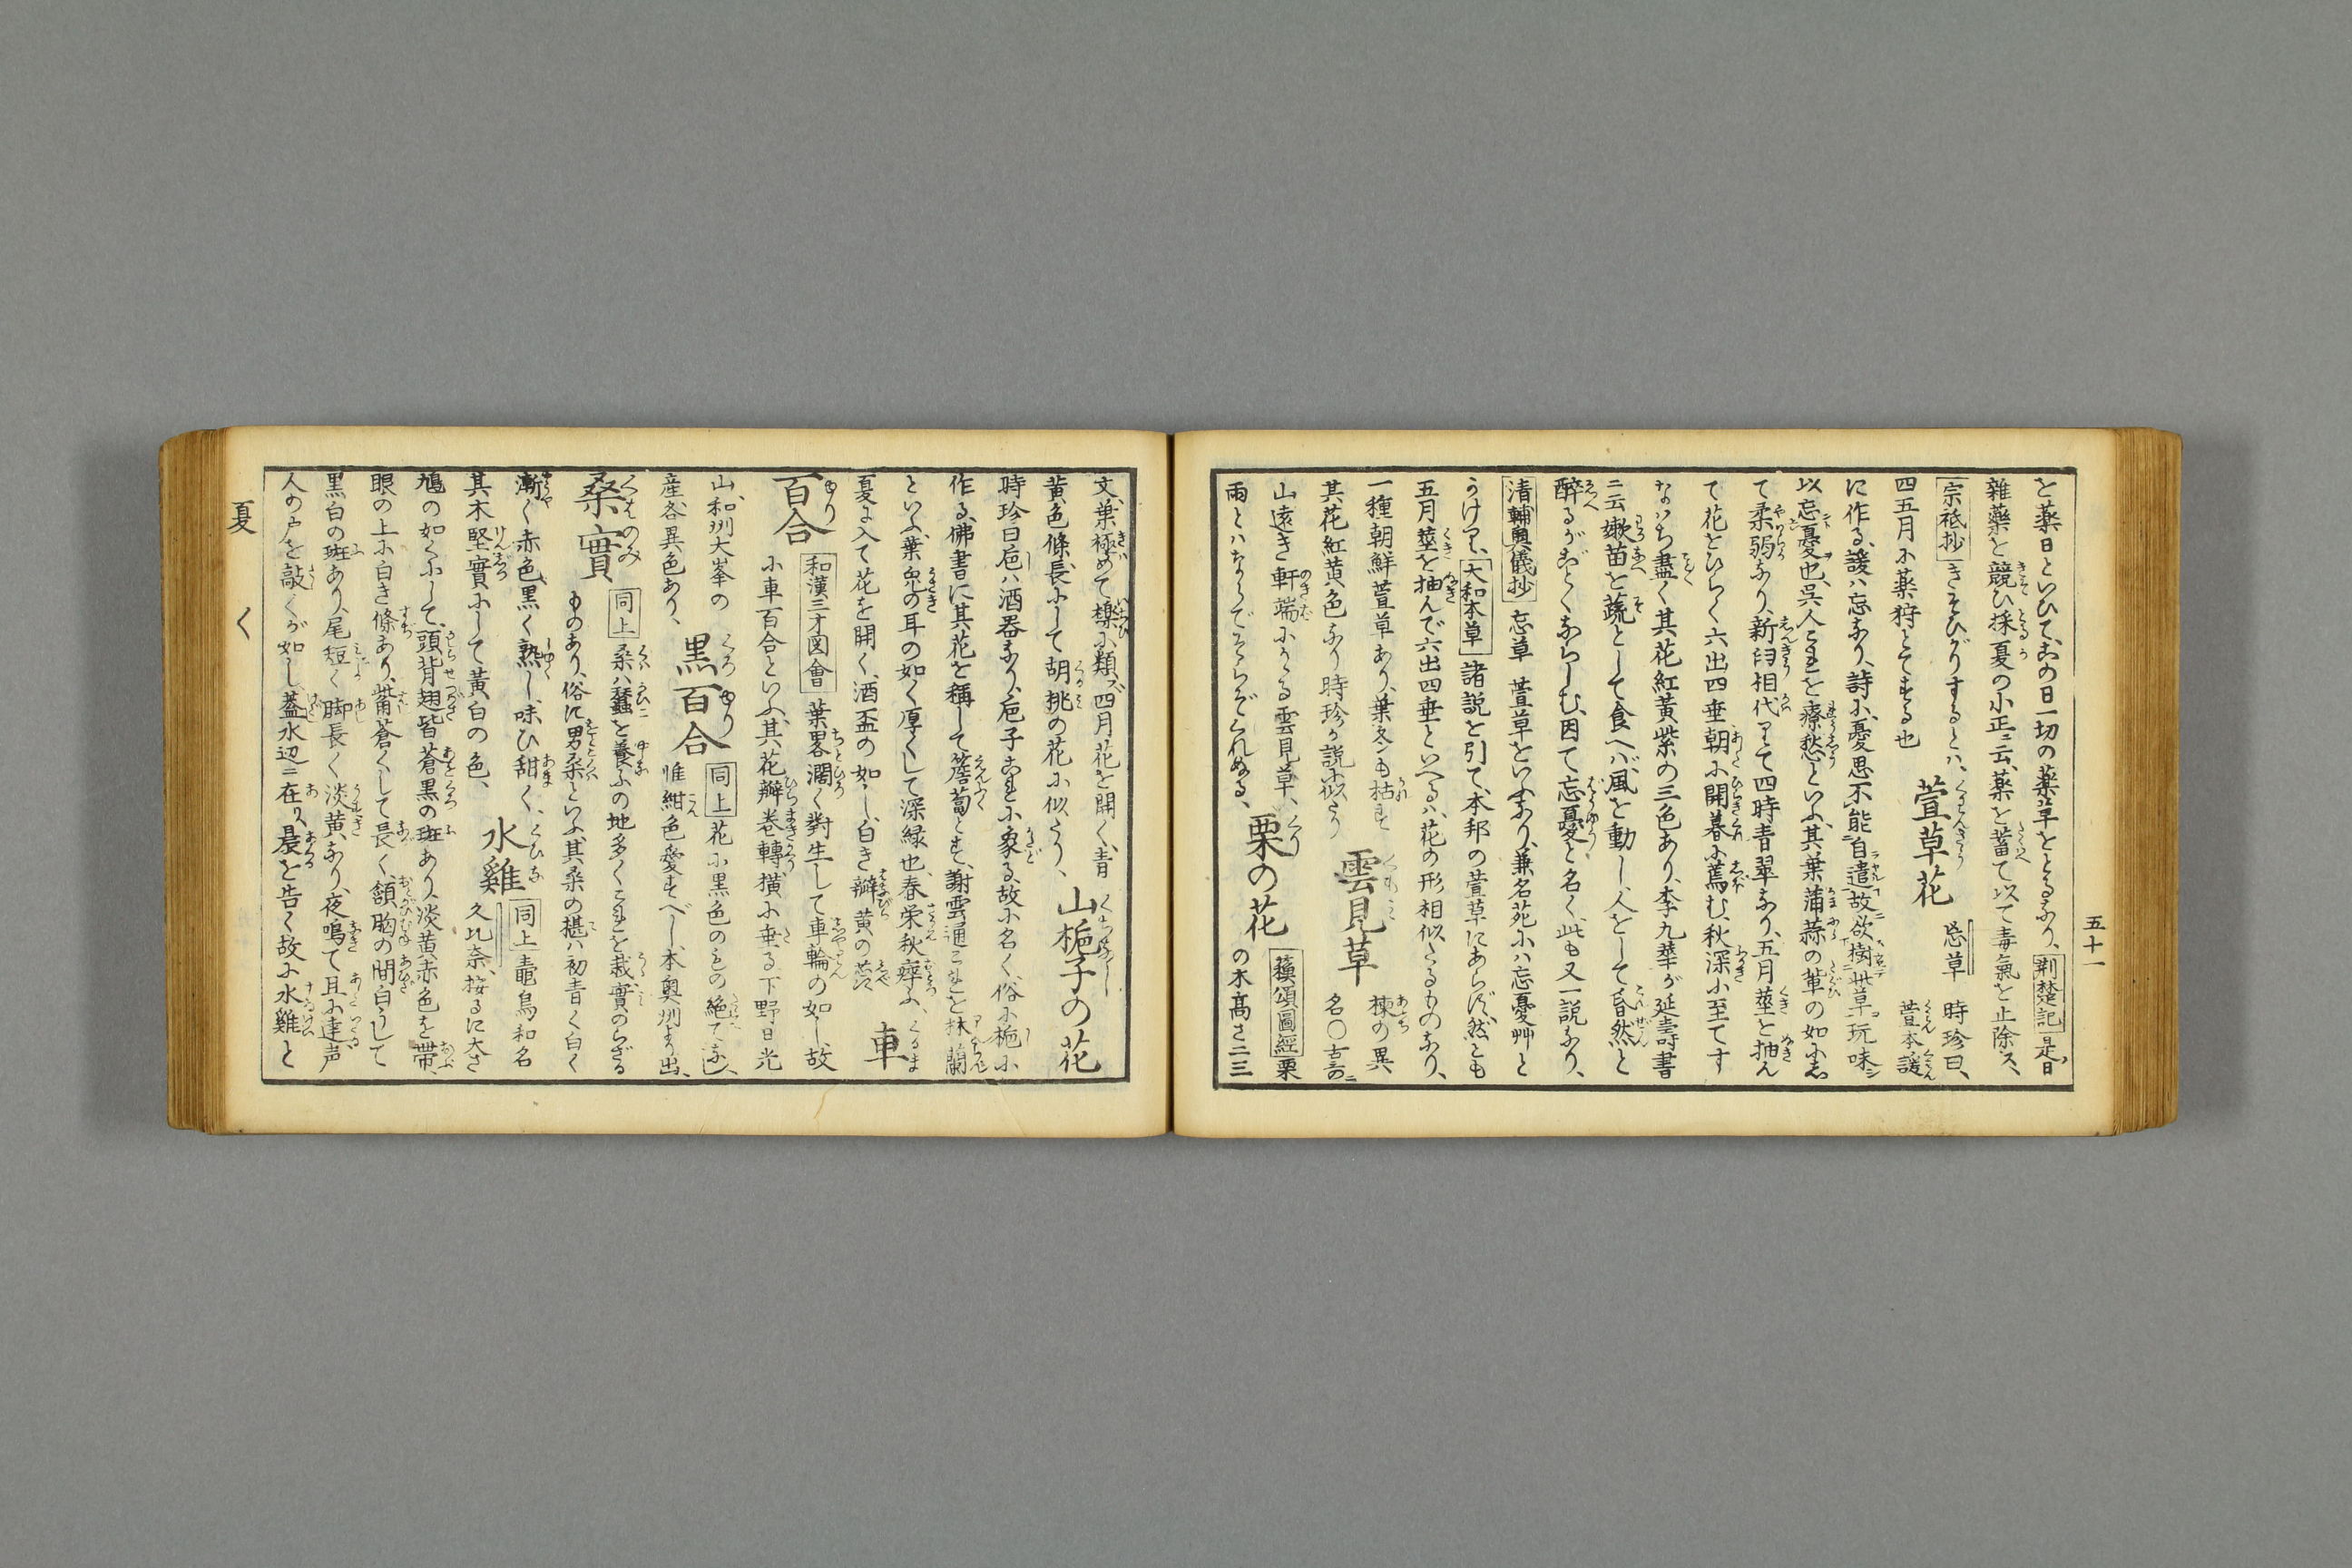 五十一
を薬日といひて、この日一切の薬草をとるなり、荊楚記是日
雑薬を競ひ採、夏の小正ニ云、薬を蓄て以て毒氣を止除ス、
宗祇抄 きそひがりするとハ、
四五月に薬狩とてする也
萱草花 忘草 時珍曰、萱本諼
に作る、諼ハ忘なり、詩に、憂思不能自遣、故欲樹此草玩味シ
以忘憂也、呉人これを療愁といふ、其葉蒲蒜の軰の如にし
て柔弱なり、新旧相代りて四時青翠なり、五月莖を抽ん
て花をひらく、六出四垂、朝に開暮に蔫む、秋深に至てす
なハち盡く、其花紅黄紫の三色あり、李九華が延壽書
ニ云、嫩苗を蔬として食へバ、風を動し、人をして昏然と
醉るがごとくならしむ、因て忘憂と名く、此も又一説なり、
清輔奥儀抄 忘草 萱草をいふなり、兼名苑にハ忘憂艸と
うけり、大和本草 諸説を引て、本邦の萱草にあらず、然とも
五月莖を抽んで六出四垂といへるハ、花の形相似たるものなり、
一種朝鮮萱草あり、葉冬も枯ず
其花紅黄色なり、時珍が説に似たり
雲見草 楝の異名○古哥ニ
山遠き軒端にかゝる雲見草、
雨とハならでそらぞくれぬる、
栗の花 蘓頌圖經 栗の木高さ二三
丈、葉極めて櫟に類ズ、四月花を開く、青
黄色、條長にして胡桃の花に似たり、
山梔子の花
時珍曰、巵ハ酒器なり、巵子これに象る、故に名く、俗に梔に
作る、佛書に其花を稱して薝蔔とす、謝霊運これを林蘭
といふ、葉兔の耳の如く厚くして深緑也、春栄秋瘁ふ、
夏に入て花を開く、酒盃の如し、白き瓣黄の蕊、
車百合 和漢三才図會 葉畧濶く對生して車輪の如し、故
に車百合といふ、其花瓣巻轉横に垂る、下野日光
山、和州大峯の産各異色あり、
黒百合 同上 花に黒色のもの絶てなし、
惟紺色愛すべし、本奥州より出、
桑實 同上 桑ハ蠶を養ふの地多くこれを栽、實のらざる
ものあり、俗に男桑といふ、其桑の椹ハ初青く白く
漸く赤色黒く熟し、味ひ甜く、
其木堅實にして黄白の色、
水雞 同上 鼃鳥和名久比奈、按るに大さ
鳩の如くにして、頭背翅皆蒼黒の斑あり、淡黄赤色を帶、
眼の上に白き條あり、觜蒼くして長く、頷胸の間白うして
黒白の斑あり、尾短く脚長く淡黄なり、夜鳴て旦に達、声
人の戸を敲くが如し、蓋水辺ニ在り、晨を告く、故に水雞と
夏 く